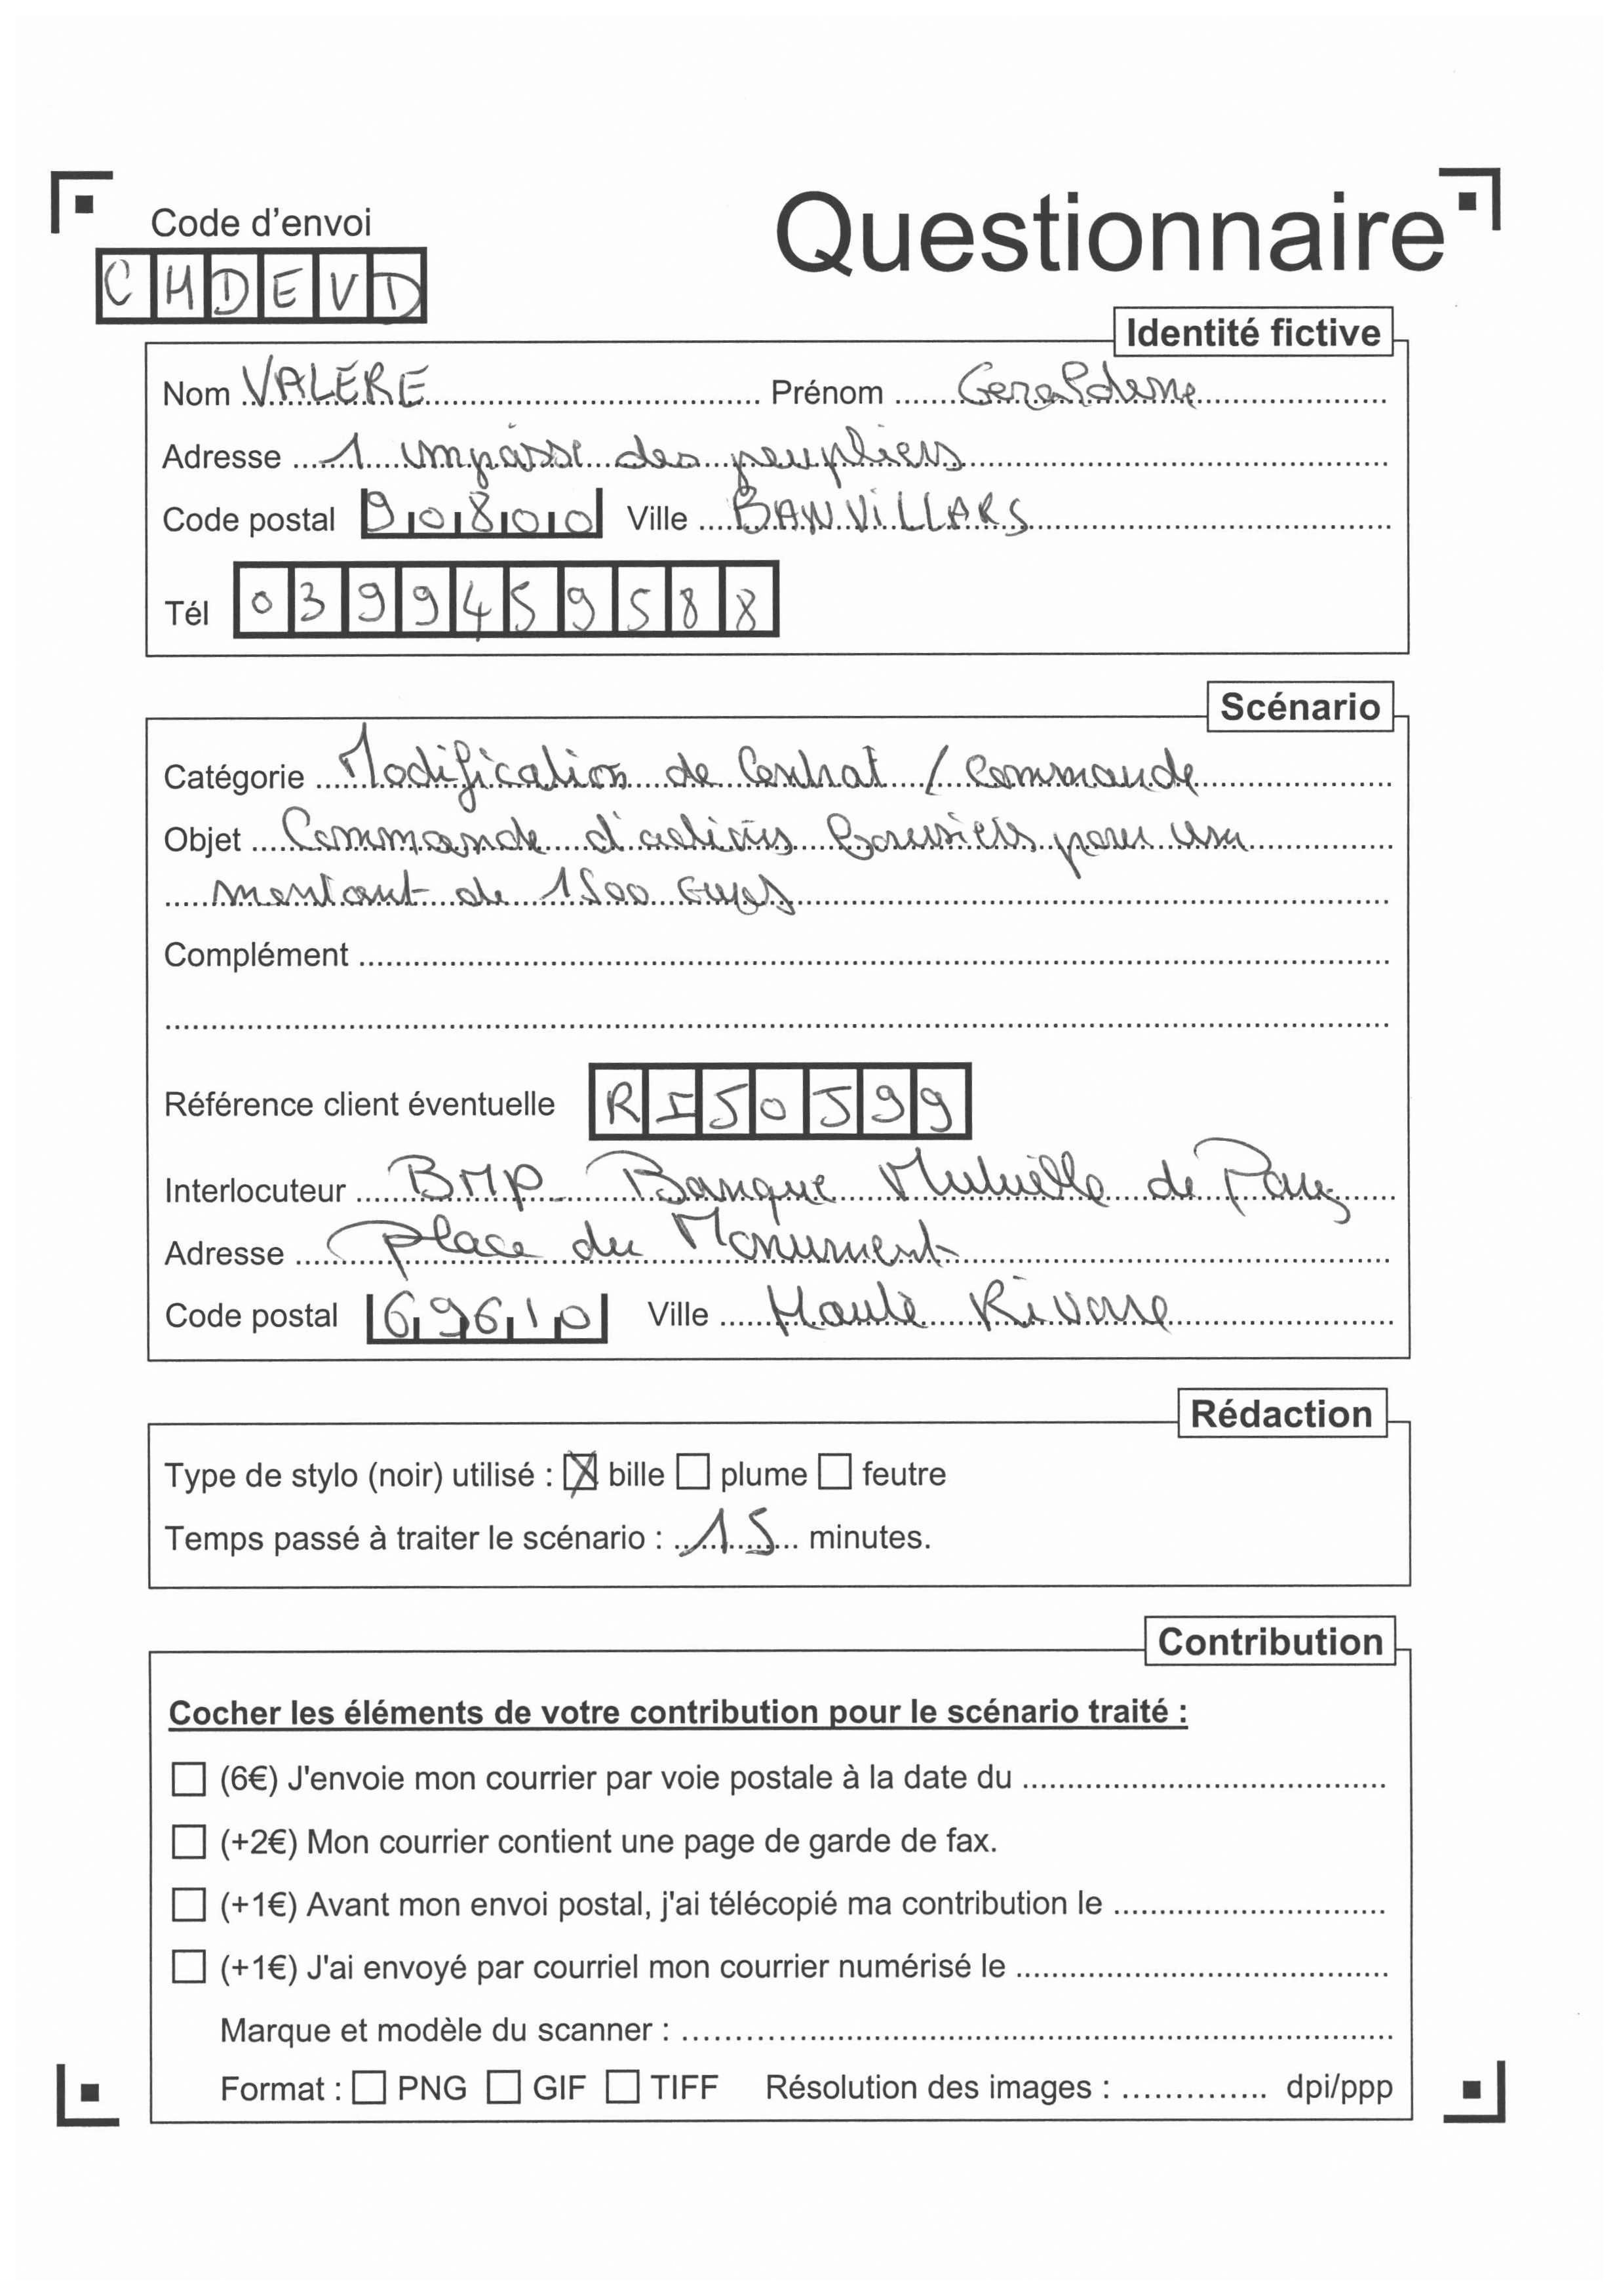 Code d'envoi
Questionnaire
CHDEVD
Identité fictive
Nom VALERE Prénom Geraldine
Adresse 1 impasse des peupliers
Code postal 90800 Ville BANVILLARS
Tél 0399459588
Scénario
Catégorie Modification de Contrat / Commande
Objet Commande d'actions boursiers pour un
montant de 1500 euros
Complément
Référence client éventuelle RI50599
Interlocuteur BMP Banque Mutuelle de
Adresse place du Monument
Code postal 69610 Ville Haute Rivoire
Rédaction
Type de stylo (noir) utilisé : bille plume feutre
Temps passé à traiter le scénario : 15 minutes.
Contribution
Cocher les éléments de votre contribution pour le scénario traité :
(6€) J'envoie mon courrier par voie postale à la date du
(+2€) Mon courrier contient une page de garde de fax.
(+1€) Avant mon envoi postal, j'ai télécopié ma contribution le
(+1€) J'ai envoyé par courriel mon courrier numérisé le
Marque et modèle du scanner :
Format : PNG GIF TIFF Résolution des images : dpi/ppp